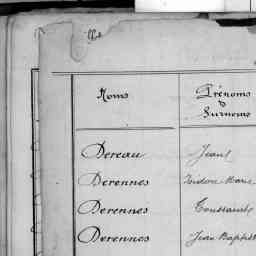 Noms Prénoms
Surnoms
Dereau Jean
Derennes Isidore Marie
Derennes Toussaint
Derennes Jean Baptist